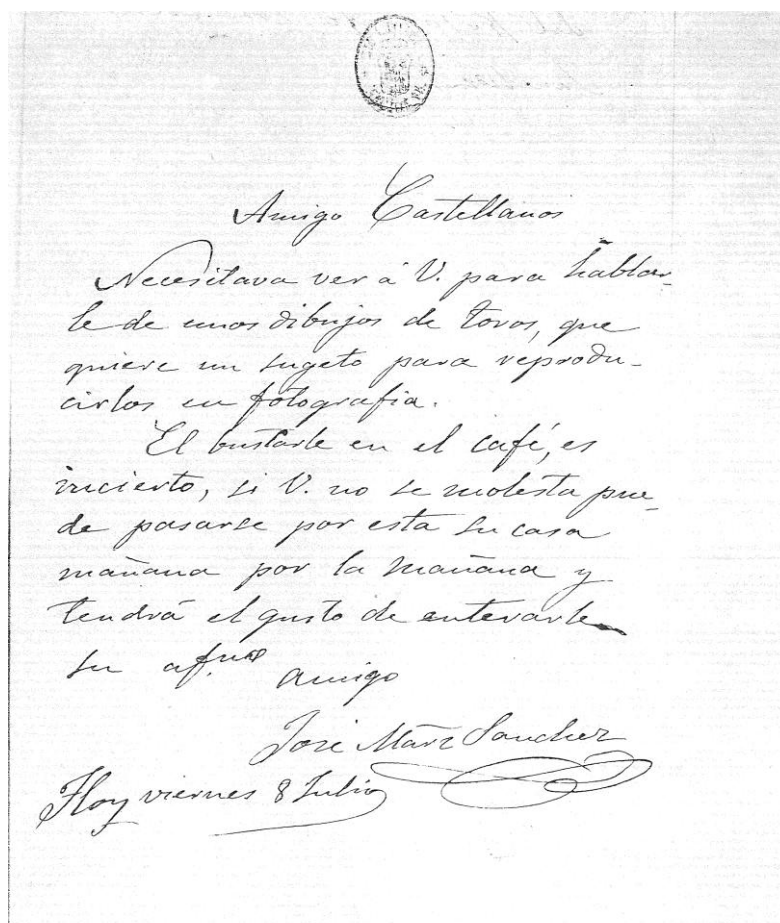 Amigo Castellanos
Necesitava ver á V. para hablar-
le de unos dibujos de toros, que
quiere un sugeto para reprodu-
cirlos en fotografia.
El buscarle en el café, es
incierto, si V. no se molesta pue-
de pasarse por esta su casa
mañana por la mañana y
tendrá el gusto de enterarle
su af.mo amigo
José Sanchez
Hoy viernes 8 Julio